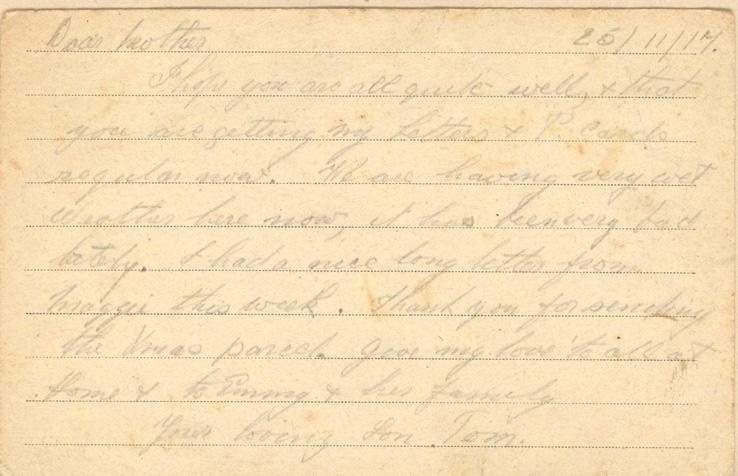 Dear Mother 25/11/17.
I hope you are all quite well, & that
you are getting my letters & P. cards
regular now. We are having very wet
weather here now, it has been very bad
lately. I had a nice long letter from
Maggie this week. Thank you for sending
the Xmas parcel. Give my love to all at
home & to & her family
Your loving Son Tom.